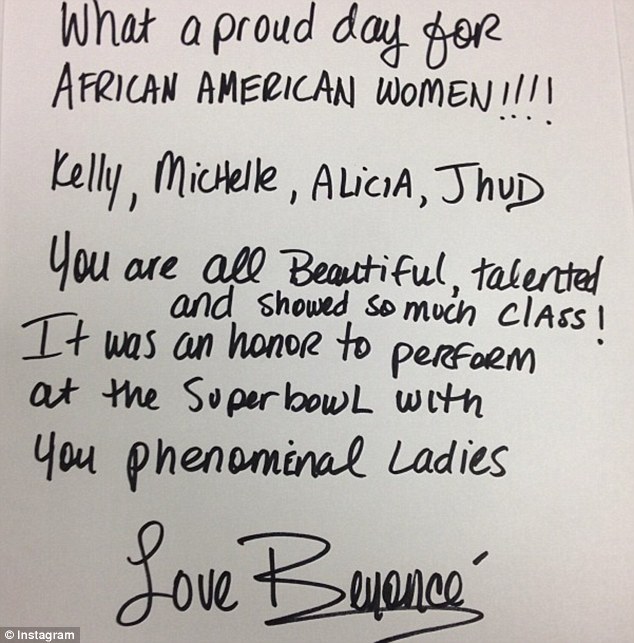 What a proud day for
AFRICAN AMERICAN WOMEN!!!!
Kelly, Michelle, ALiciA, JhuD
You are all Beautiful, talented
and showed so much clAss!
It was an honor to perform
at the Superbowl with
you phenominal Ladies
Love Beyoncé
© Instagram